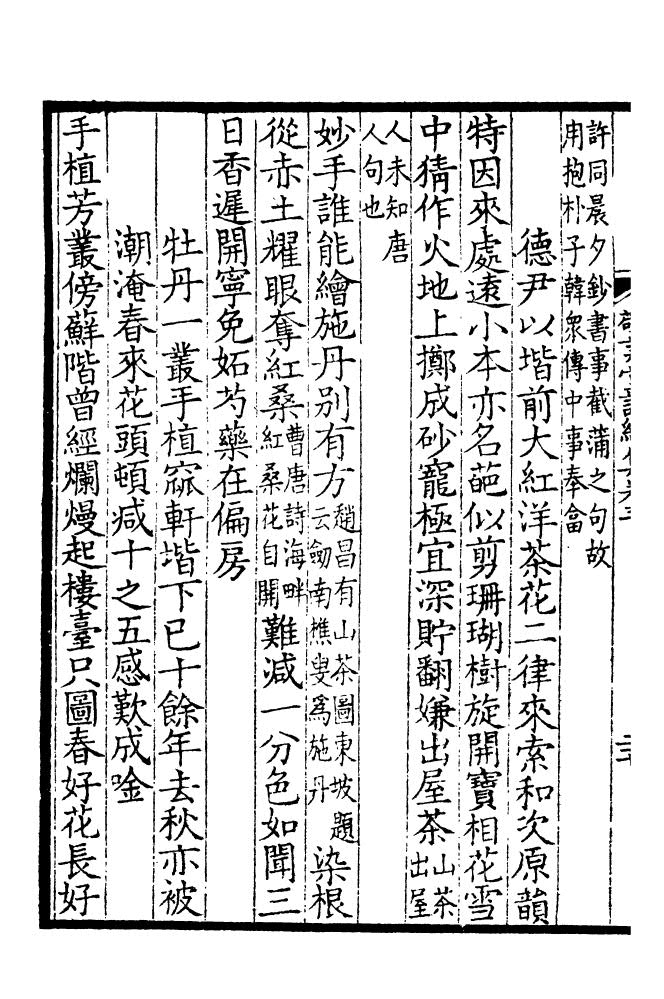 許同晨夕鈔書事截蒲之句故
用抱朴子韓衆傳中事奉畣
德尹以堦前大紅洋茶花二律來索和次原韻
特因來處遠小本亦名葩似剪珊瑚樹旋開寶相花雪
中猜作火地上擲成砂寵極宜深貯翻嫌出屋茶山茶出屋
人未知唐人句也
妙手誰能繪施丹別有方趙昌有山茶圖東坡題云劒南樵叟爲施丹染根
從赤土耀眼奪紅桑曹唐詩海畔紅桑花自開難減一分色如聞三
日香遲開寧免妬芍藥在偏房
牡丹一叢手植窳軒堦下已十餘年去秋亦被
潮淹春來花頭頓減十之五感歎成唫
手植芳叢傍蘚階曾經爛熳起樓臺只圖春好花長好